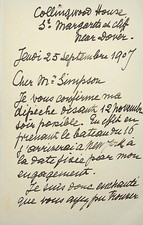 Collingwood House
St Margarets at Cliff
Near Dover.
Jeudi 25 septembre 1907
Cher Mr Simpson
Je vous confirme ma
dépêche disant 12 novembre
soir possible. En effet en
prenant le bateau du 16
j'arriverai à New York à
la date fixée par mon
engagement.
Je suis donc enchanté
que vous ayez pu trouver